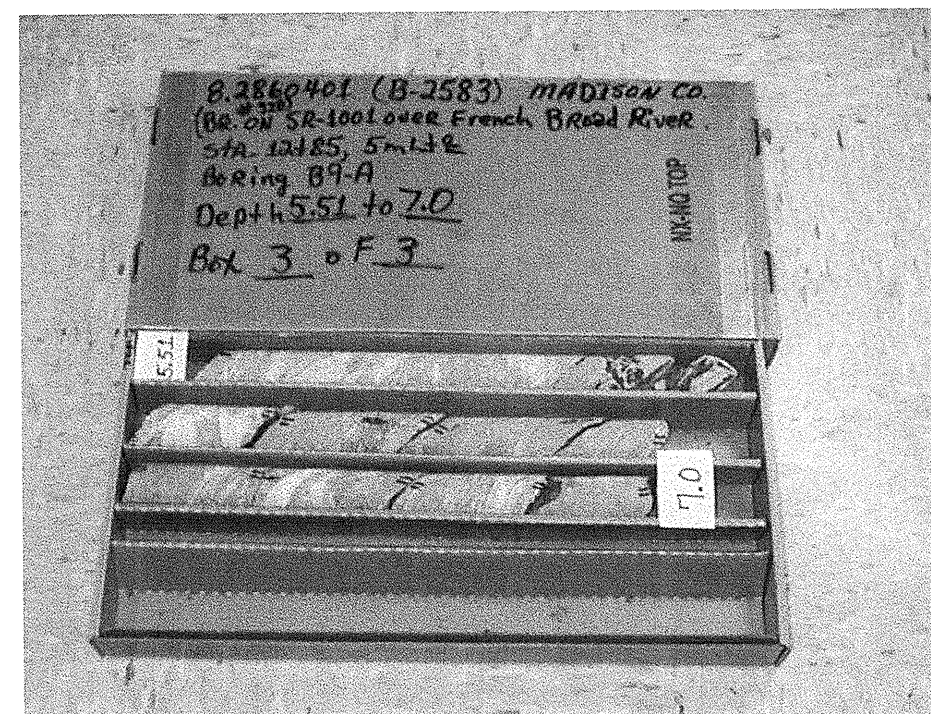 8.2860401 (B-2583) MADISON CO.
(BR. ON SR-1001 over French BRoad RiveR
STA 12+85, 5m Lt
BoRing B9-A
Depth 5.51 to 7.0
Box 3 oF 3
NX-NQ TOP
5.51
7.0